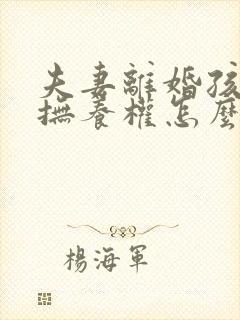 夫妻離婚孩
撫養權怎麼
楊海軍